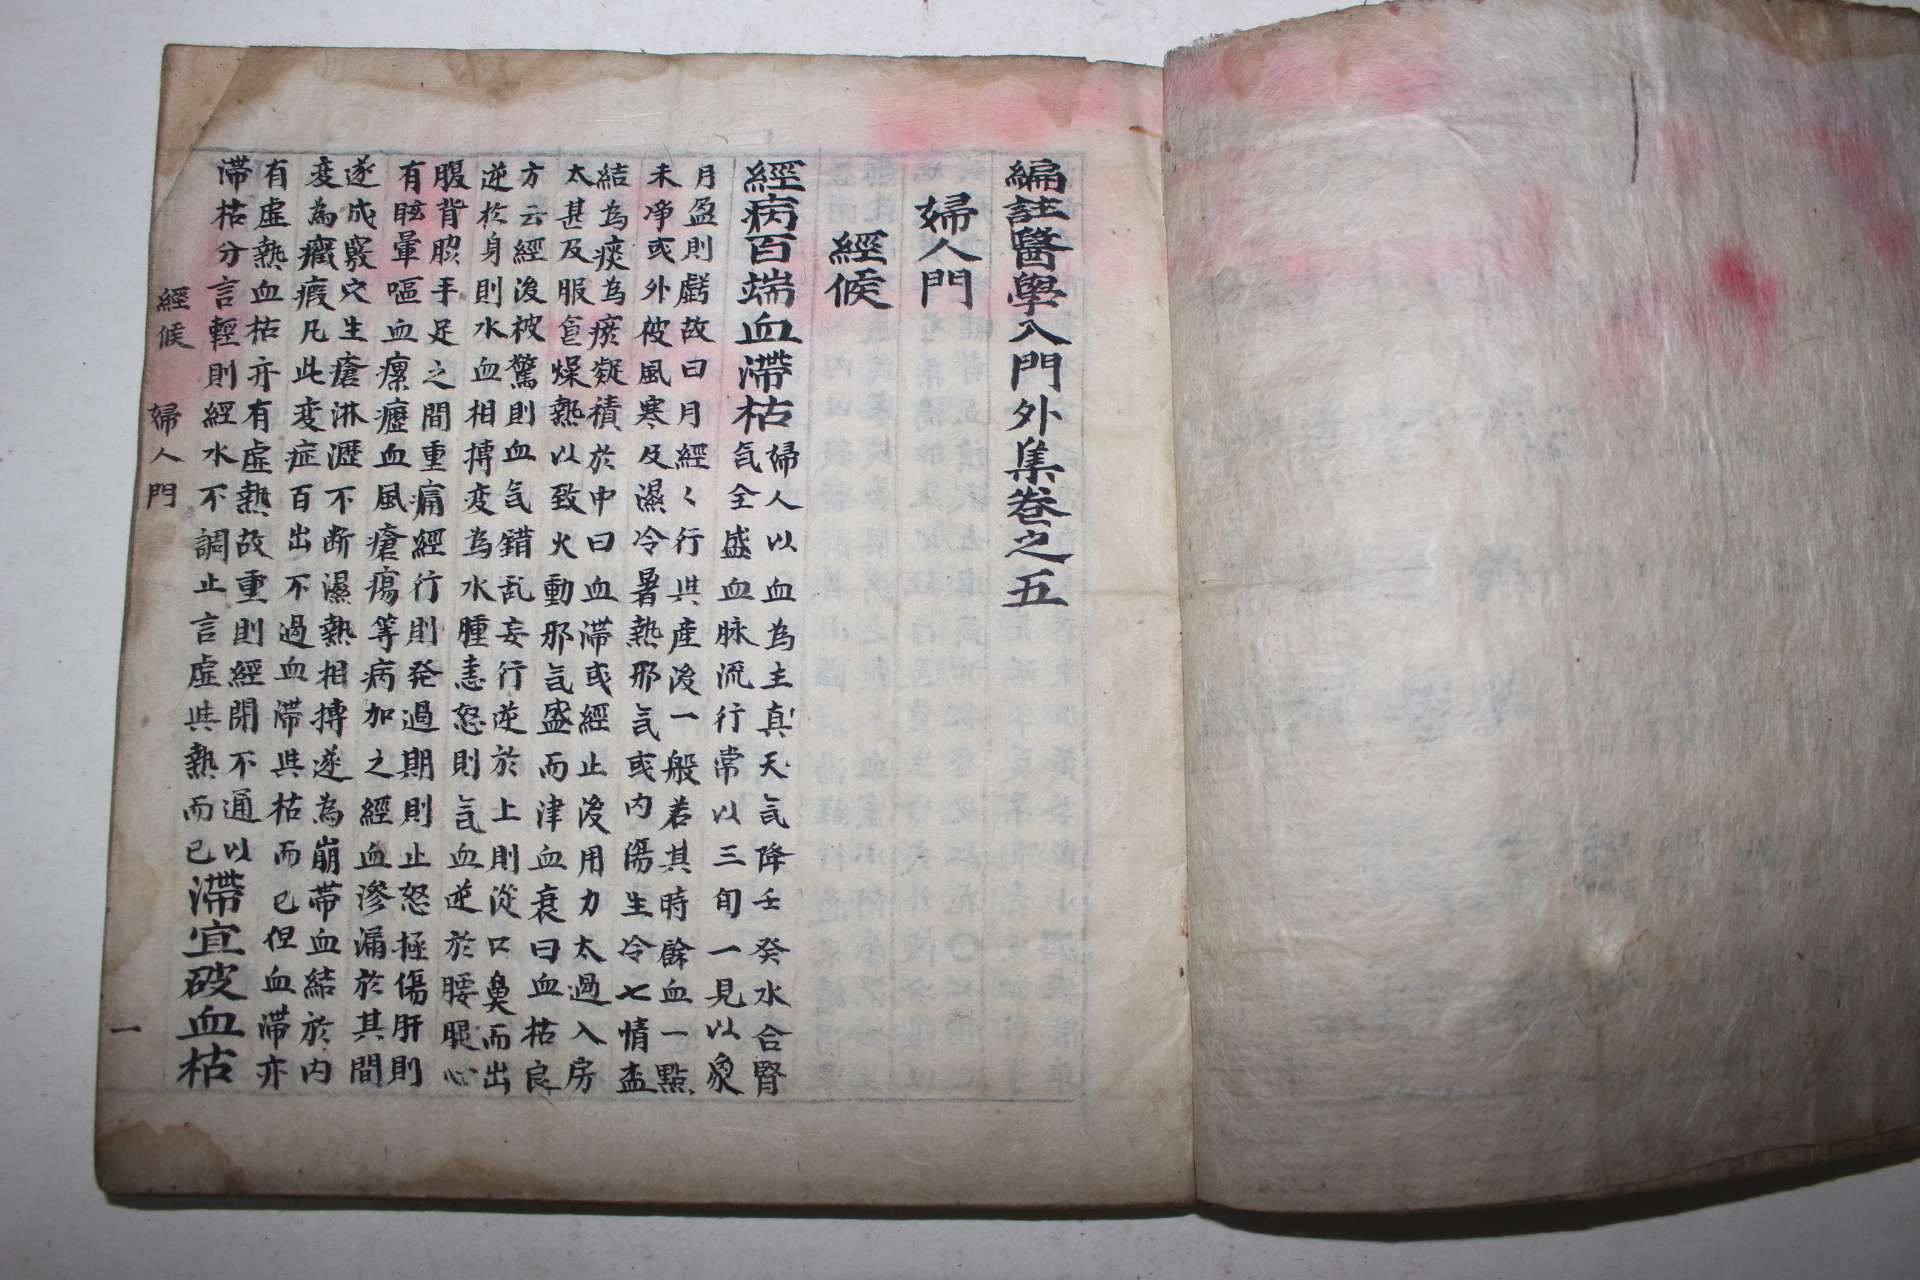 編註醫學入門外集卷之五
婦人門
經候
經病百端血滯枯
婦人以血為主真天気降壬癸水合腎
気全盛血脉流行常以三旬一見以象
月盈則虧故曰月經〻行與產後一般若其時餘血一點
未凈或外被風寒及濕冷暑熱邪気或内傷生冷七情盉
結為痰為瘀凝積於中曰血滯或經止後用力太過入房
太甚及服食燥熱以致火動邪気盛而津血衰曰血枯良
方云經後被驚則血気錯乱妄行逆於上則從口鼻而出
逆於身則水血相搏変為水腫恚怒則気血逆於腰腿心
腹背脇手足之間重痛經行則発過期則止怒極傷肝則
有眩暈嘔血瘰癧血風瘡瘍等病加之經血滲漏於其間
遂成竅穴生瘡淋瀝不断濕熱相搏遂為崩帶血結於内
変為癥瘕凡此変症百出不過血滯與枯而已但血滯亦
有虛熱血枯亦有虛熱故重則經閉不通以
滯枯分言輕則經水不調止言虛與熱而已
滯宜破血枯
經候 婦人門 一